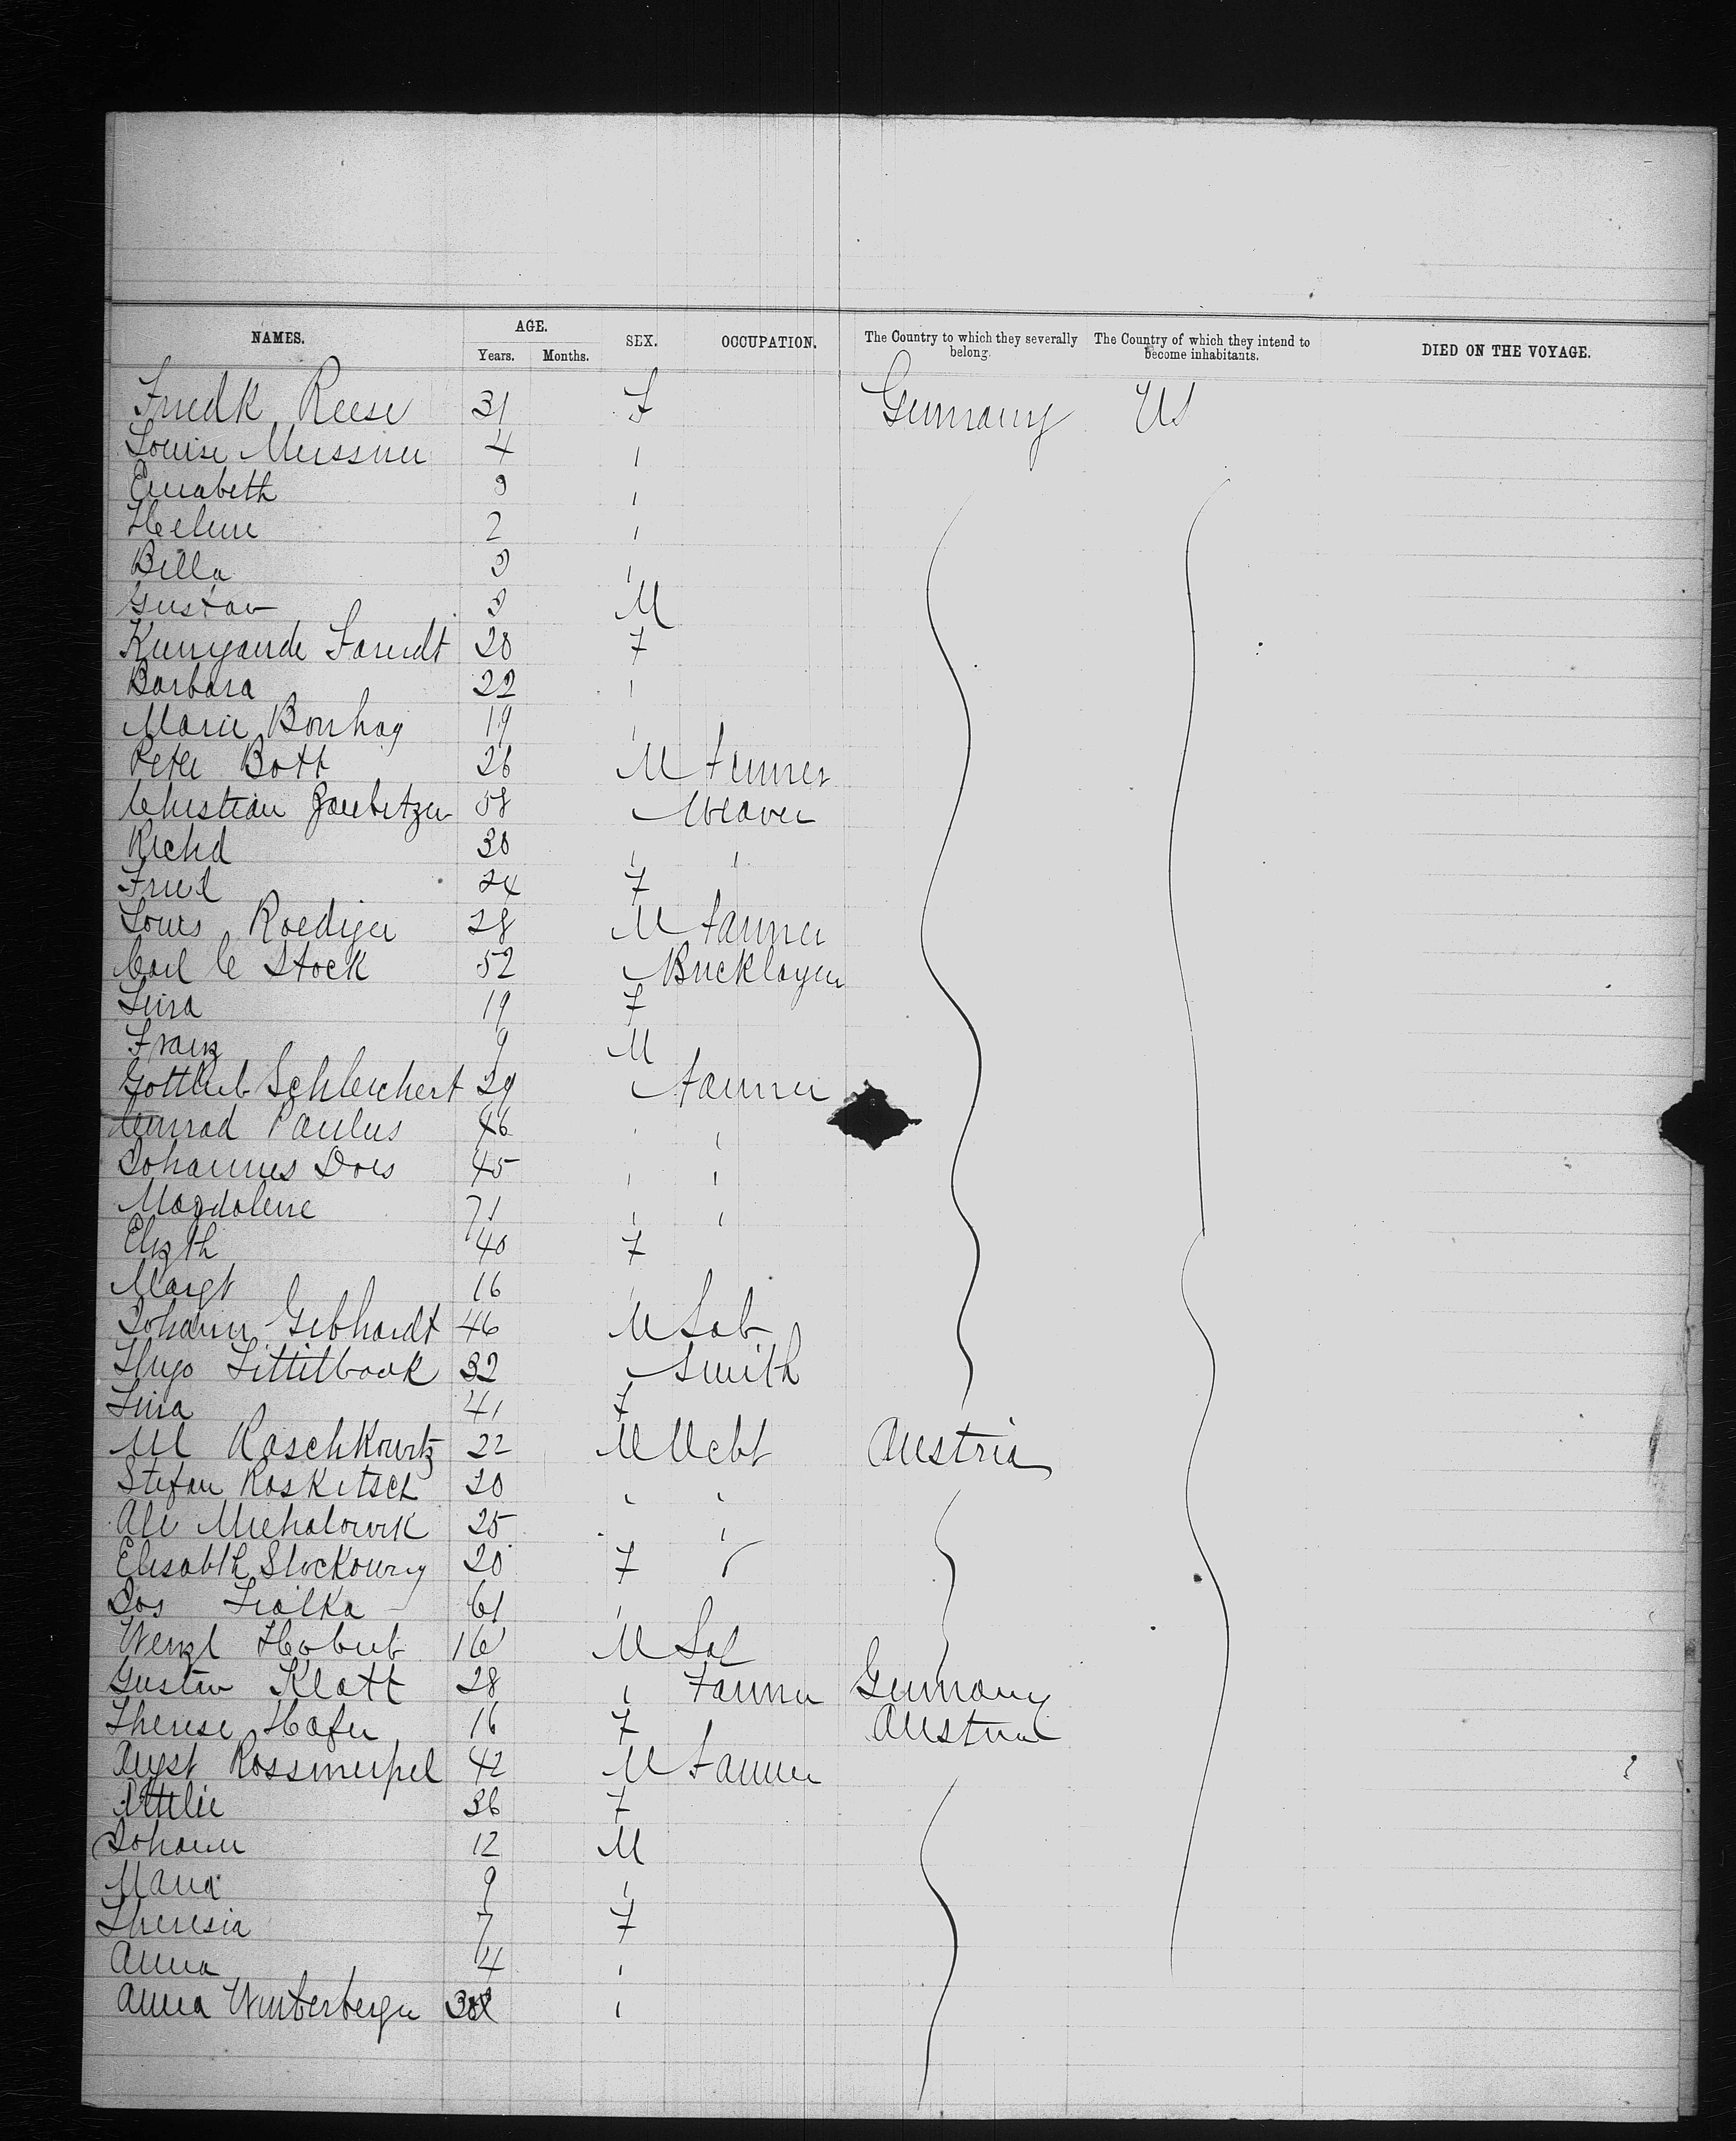 NAMES. AGE. SEX. OCCUPATION. The Country to which they severally belong. The Country of which they intend to become inhabitants. DIED ON THE VOYAGE.
Years. Months.
Friedk Reese 31 F Germany US
Louise Meissner 4 "
Elisabeth 9 "
Helene 2 "
Bella 9 "
Gustav 9 M
28 F
Barbara 22 "
Marie Bonhag 19 "
Peter Bott 26 M farmer
Christian 58 Weaver
Richd 30 " "
Fried 24 F
Louis Roediger 28 M farmer
Carl C Stock 52 Bricklayer
Lina 19 F
Franz 9 M
Gottlieb Schleichert 29 farmer
Conrad Paulus 46 " "
Johannes Does 45 " "
Magdalene 71 " "
Elizth 40 F
Margt 16 "
Johann Gebhardt 46 M Lab
Hugo 32 Smith
Lina 41 F
M Raschkowitz 22 M Austria
Stefan Raskitsch 20 " "
25 " "
Elisabth 20 F
Jos Fialka 61 "
Wenzl 16 M
Gustav Klatt 28 " Farmer Germany
Therese Hafer 16 F Austria
Augst 42 M farmer
Ottilie 36 F
Johann 12 M
Maria 9 "
Theresia 7 F
Anna 4 "
Anna Winterberger "